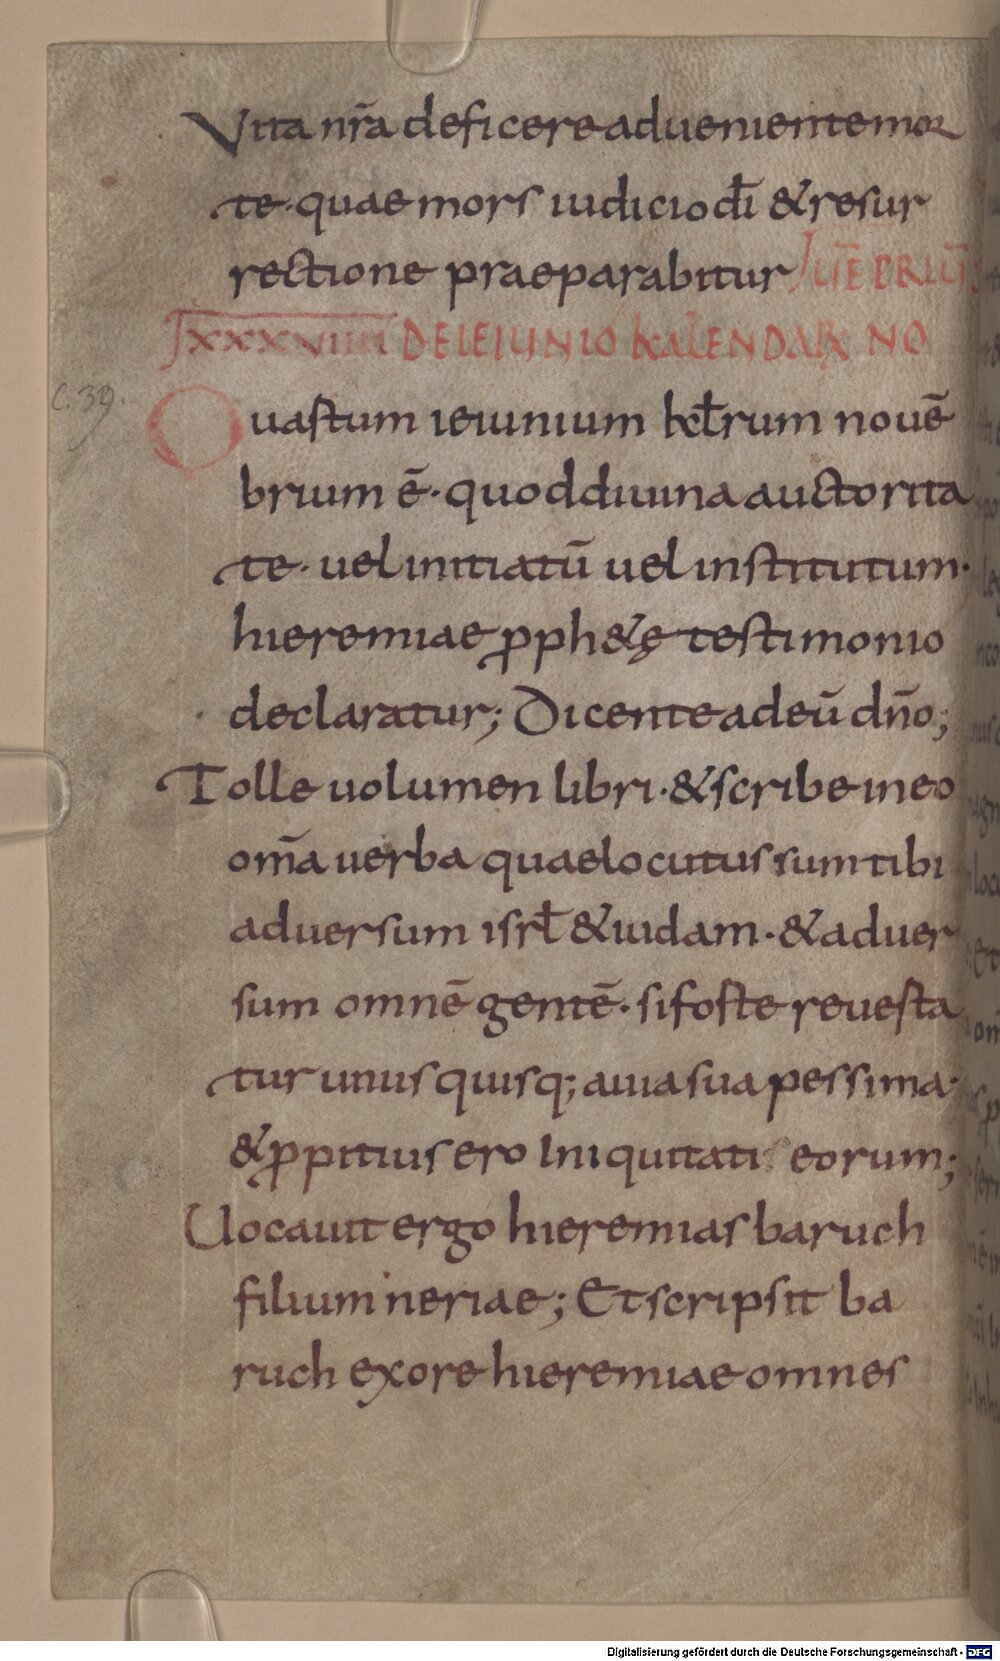 Vita nr̄a deficere adueniente mor
te· quae mors iudicio dī & resur
rectione praeparabitur UĒBRIŪ
XXXVIIII DE IEIUNIO KALENDARŨ NO
C. 39.
Quastum ieiunium kƚrum nouē
brium ē· quod diuina auctorita
te· uel initiatū uel institutum·
hieremiae ꝓph&ę testimonio
declaratur; Dicente ad eū dn̄o;
Tolle uolumen libri· & scribe in eo
om̄a uerba quae locutus sum tibi
aduersum isrƚ & iudam· & aduer
sum omnē gentē· si foste reuesta
tur unus quisq; a uia sua pessima·
& ꝓpitius ero Iniquitati eorum;
Uocauit ergo hieremias baruch
filium neriae; Et scripsit ba
ruch ex ore hieremiae omnes
Digitalisierung gefördert durch die Deutsche Forschungsgemeinschaft - DFG